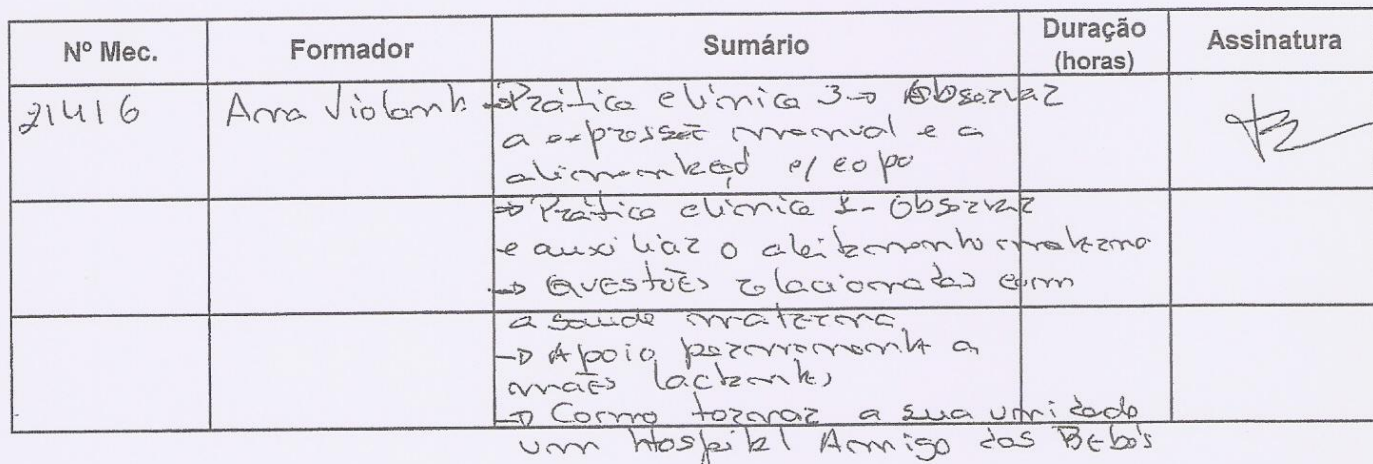 Nº Mec. Formador Sumário Duração (horas) Assinatura
21416 Ana Violante → Prática clínica 3 → Observar
a expressão manual e a
alimentação c/ copo
→ Prática clínica 1 - Observar
e auxiliar o aleitamento materno
→ Questões relacionadas com
a saúde materna
→ Apoio permanente a
mães lactantes
→ Como tornar a sua unidade
um Hospital Amigo dos Bebés